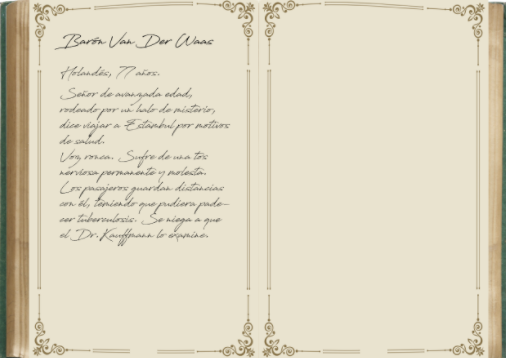 Barón Van Der Waas
Holandés, 77 años.
Señor de avanzada edad,
rodeado por un halo de misterio,
dice viajar a Estambul por motivos
de salud.
Voz ronca. Sufre de una tos
nerviosa permanente y molesta.
Los pasajeros guardan distancias
con él, temiendo que pudiera pade-
cer tuberculosis. Se niega a que
el Dr. Kauffmann lo examine.